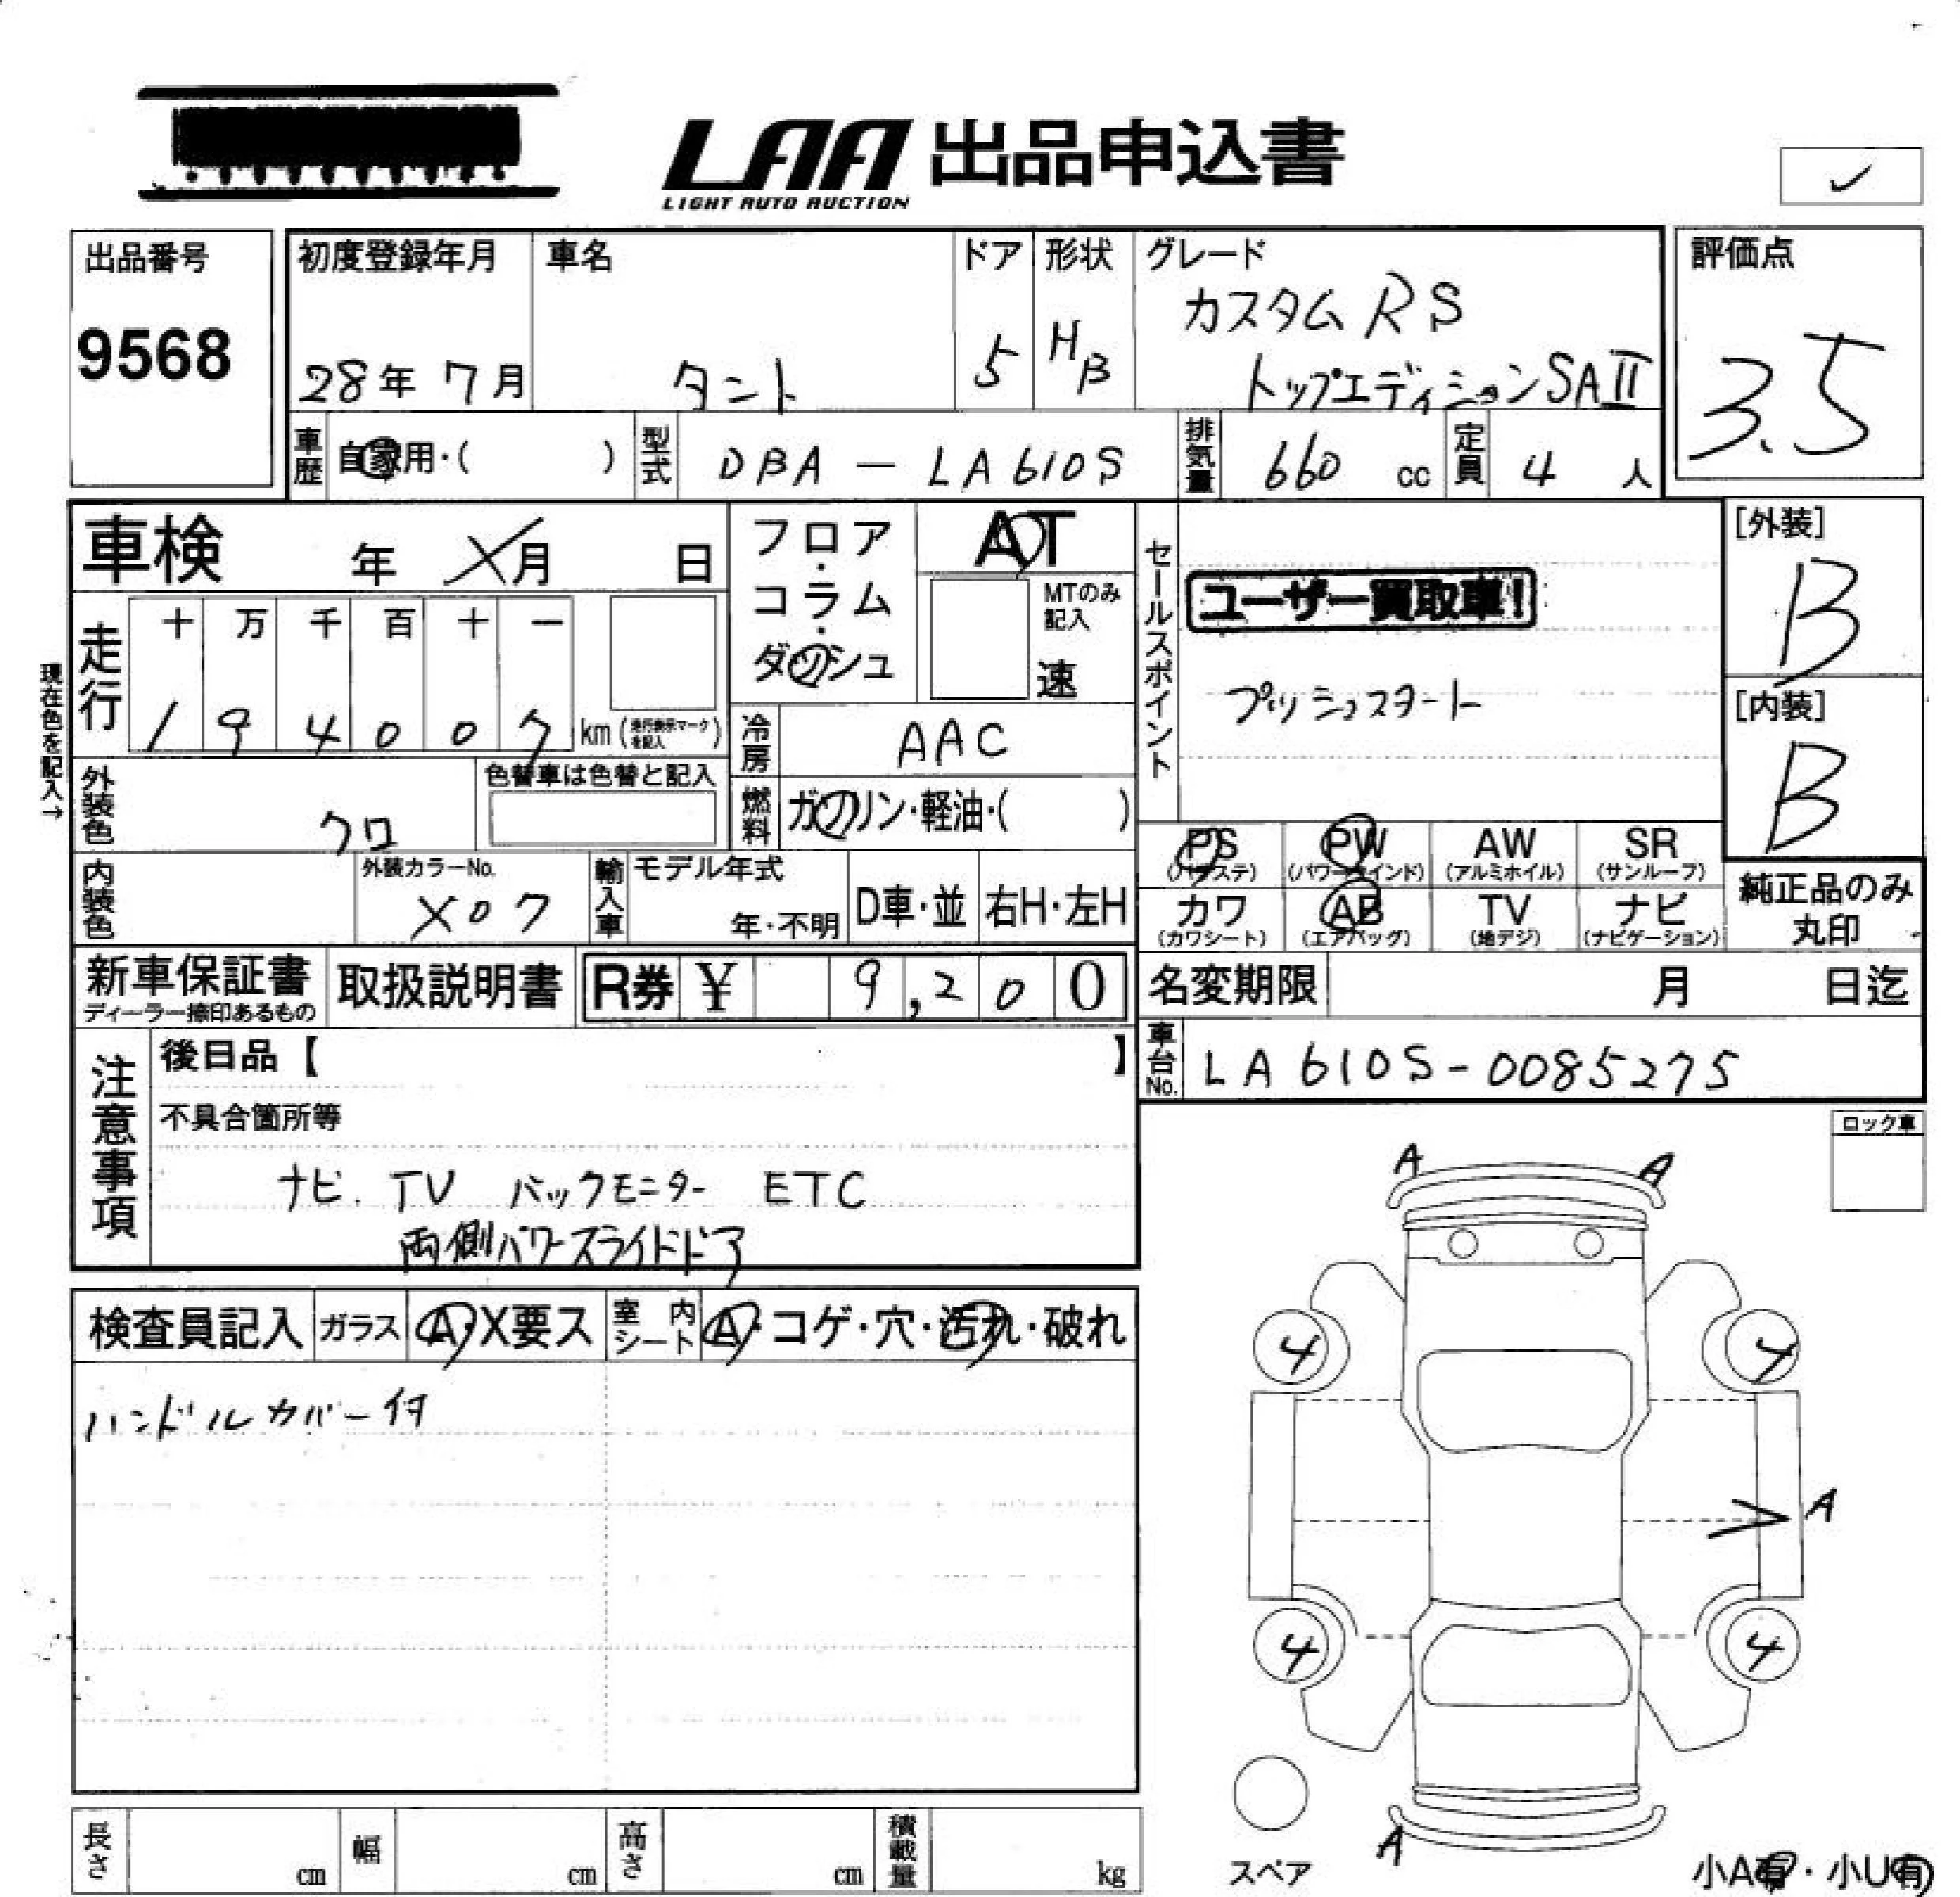 LAA 出品申込書
LIGHT AUTO AUCTION
出品番号
9568
初度登録年月
28年 7月
車名
タント
ドア
5
形状
HB
グレード
カスタム RS
トップエディションSAⅡ
評価点
3.5
車歴
自家用・( )
型式
DBA - LA610S
排気量
660 cc
定員
4 人
車検 年 X月 日
フロア・コラム・ダッシュ
AT
MTのみ記入
速
セールスポイント
ユーザー買取車!
プッシュスタート
[外装]
B
[内装]
B
現在色を記入→
走行
十 万 千 百 十 一
1 9 4 0 0 7 km (走行表示マークを記入)
冷房
AAC
外装色
クロ
色替車は色替と記入
燃料
ガソリン・軽油・( )
内装色
外装カラーNo.
X07
輸入車
モデル年式
年・不明
D車・並
右H・左H
PS (パワステ)
PW (パワーウインド)
AW (アルミホイル)
SR (サンルーフ)
カワ (カワシート)
AB (エアバッグ)
TV (地デジ)
ナビ (ナビゲーション)
純正品のみ
丸印
新車保証書
ディーラー捺印あるもの
取扱説明書
R券 ¥ 9,200
名変期限 月 日迄
車台No.
LA610S-0085275
注意事項
後日品【 】
不具合箇所等
ナビ. TV バックモニター ETC
両側パワースライドドア
ロック車
検査員記入
ガラス
A・X要ス
室内シート
A・コゲ・穴・汚れ・破れ
ハンドルカバー付
A A
4 4
A
4 4
A
スペア
小A有・小U有
長さ cm
幅 cm
高さ cm
積載量 kg